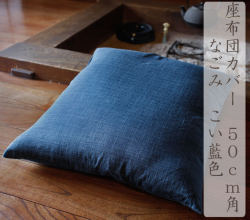 座布団カバー　５０ｃｍ角
なごみ　こい藍色